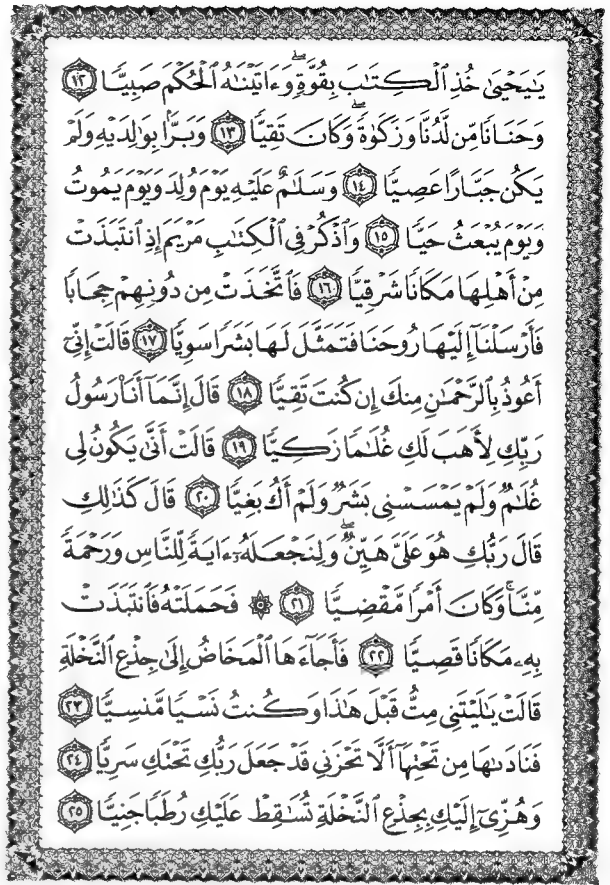 يَٰيَحْيَىٰ خُذِ ٱلْكِتَٰبَ بِقُوَّةٖۖ وَءَاتَيْنَٰهُ ٱلْحُكْمَ صَبِيّٗا ١٢
وَحَنَانٗا مِّن لَّدُنَّا وَزَكَوٰةٗۖ وَكَانَ تَقِيّٗا ١٣ وَبَرَّۢا بِوَٰلِدَيْهِ وَلَمْ
يَكُن جَبَّارًا عَصِيّٗا ١٤ وَسَلَٰمٌ عَلَيْهِ يَوْمَ وُلِدَ وَيَوْمَ يَمُوتُ
وَيَوْمَ يُبْعَثُ حَيّٗا ١٥ وَٱذْكُرْ فِي ٱلْكِتَٰبِ مَرْيَمَ إِذِ ٱنتَبَذَتْ
مِنْ أَهْلِهَا مَكَانٗا شَرْقِيّٗا ١٦ فَٱتَّخَذَتْ مِن دُونِهِمْ حِجَابٗا
فَأَرْسَلْنَآ إِلَيْهَا رُوحَنَا فَتَمَثَّلَ لَهَا بَشَرٗا سَوِيّٗا ١٧ قَالَتْ إِنِّيٓ
أَعُوذُ بِٱلرَّحْمَٰنِ مِنكَ إِن كُنتَ تَقِيّٗا ١٨ قَالَ إِنَّمَآ أَنَا۠ رَسُولُ
رَبِّكِ لِأَهَبَ لَكِ غُلَٰمٗا زَكِيّٗا ١٩ قَالَتْ أَنَّىٰ يَكُونُ لِي
غُلَٰمٞ وَلَمْ يَمْسَسْنِي بَشَرٞ وَلَمْ أَكُ بَغِيّٗا ٢٠ قَالَ كَذَٰلِكِ
قَالَ رَبُّكِ هُوَ عَلَيَّ هَيِّنٞۖ وَلِنَجْعَلَهُۥٓ ءَايَةٗ لِّلنَّاسِ وَرَحْمَةٗ
مِّنَّاۚ وَكَانَ أَمْرٗا مَّقْضِيّٗا ٢١ ۞ فَحَمَلَتْهُ فَٱنتَبَذَتْ
بِهِۦ مَكَانٗا قَصِيّٗا ٢٢ فَأَجَآءَهَا ٱلْمَخَاضُ إِلَىٰ جِذْعِ ٱلنَّخْلَةِ
قَالَتْ يَٰلَيْتَنِي مِتُّ قَبْلَ هَٰذَا وَكُنتُ نَسْيٗا مَّنسِيّٗا ٢٣
فَنَادَىٰهَا مِن تَحْتِهَآ أَلَّا تَحْزَنِي قَدْ جَعَلَ رَبُّكِ تَحْتَكِ سَرِيّٗا ٢٤
وَهُزِّيٓ إِلَيْكِ بِجِذْعِ ٱلنَّخْلَةِ تُسَٰقِطْ عَلَيْكِ رُطَبٗا جَنِيّٗا ٢٥